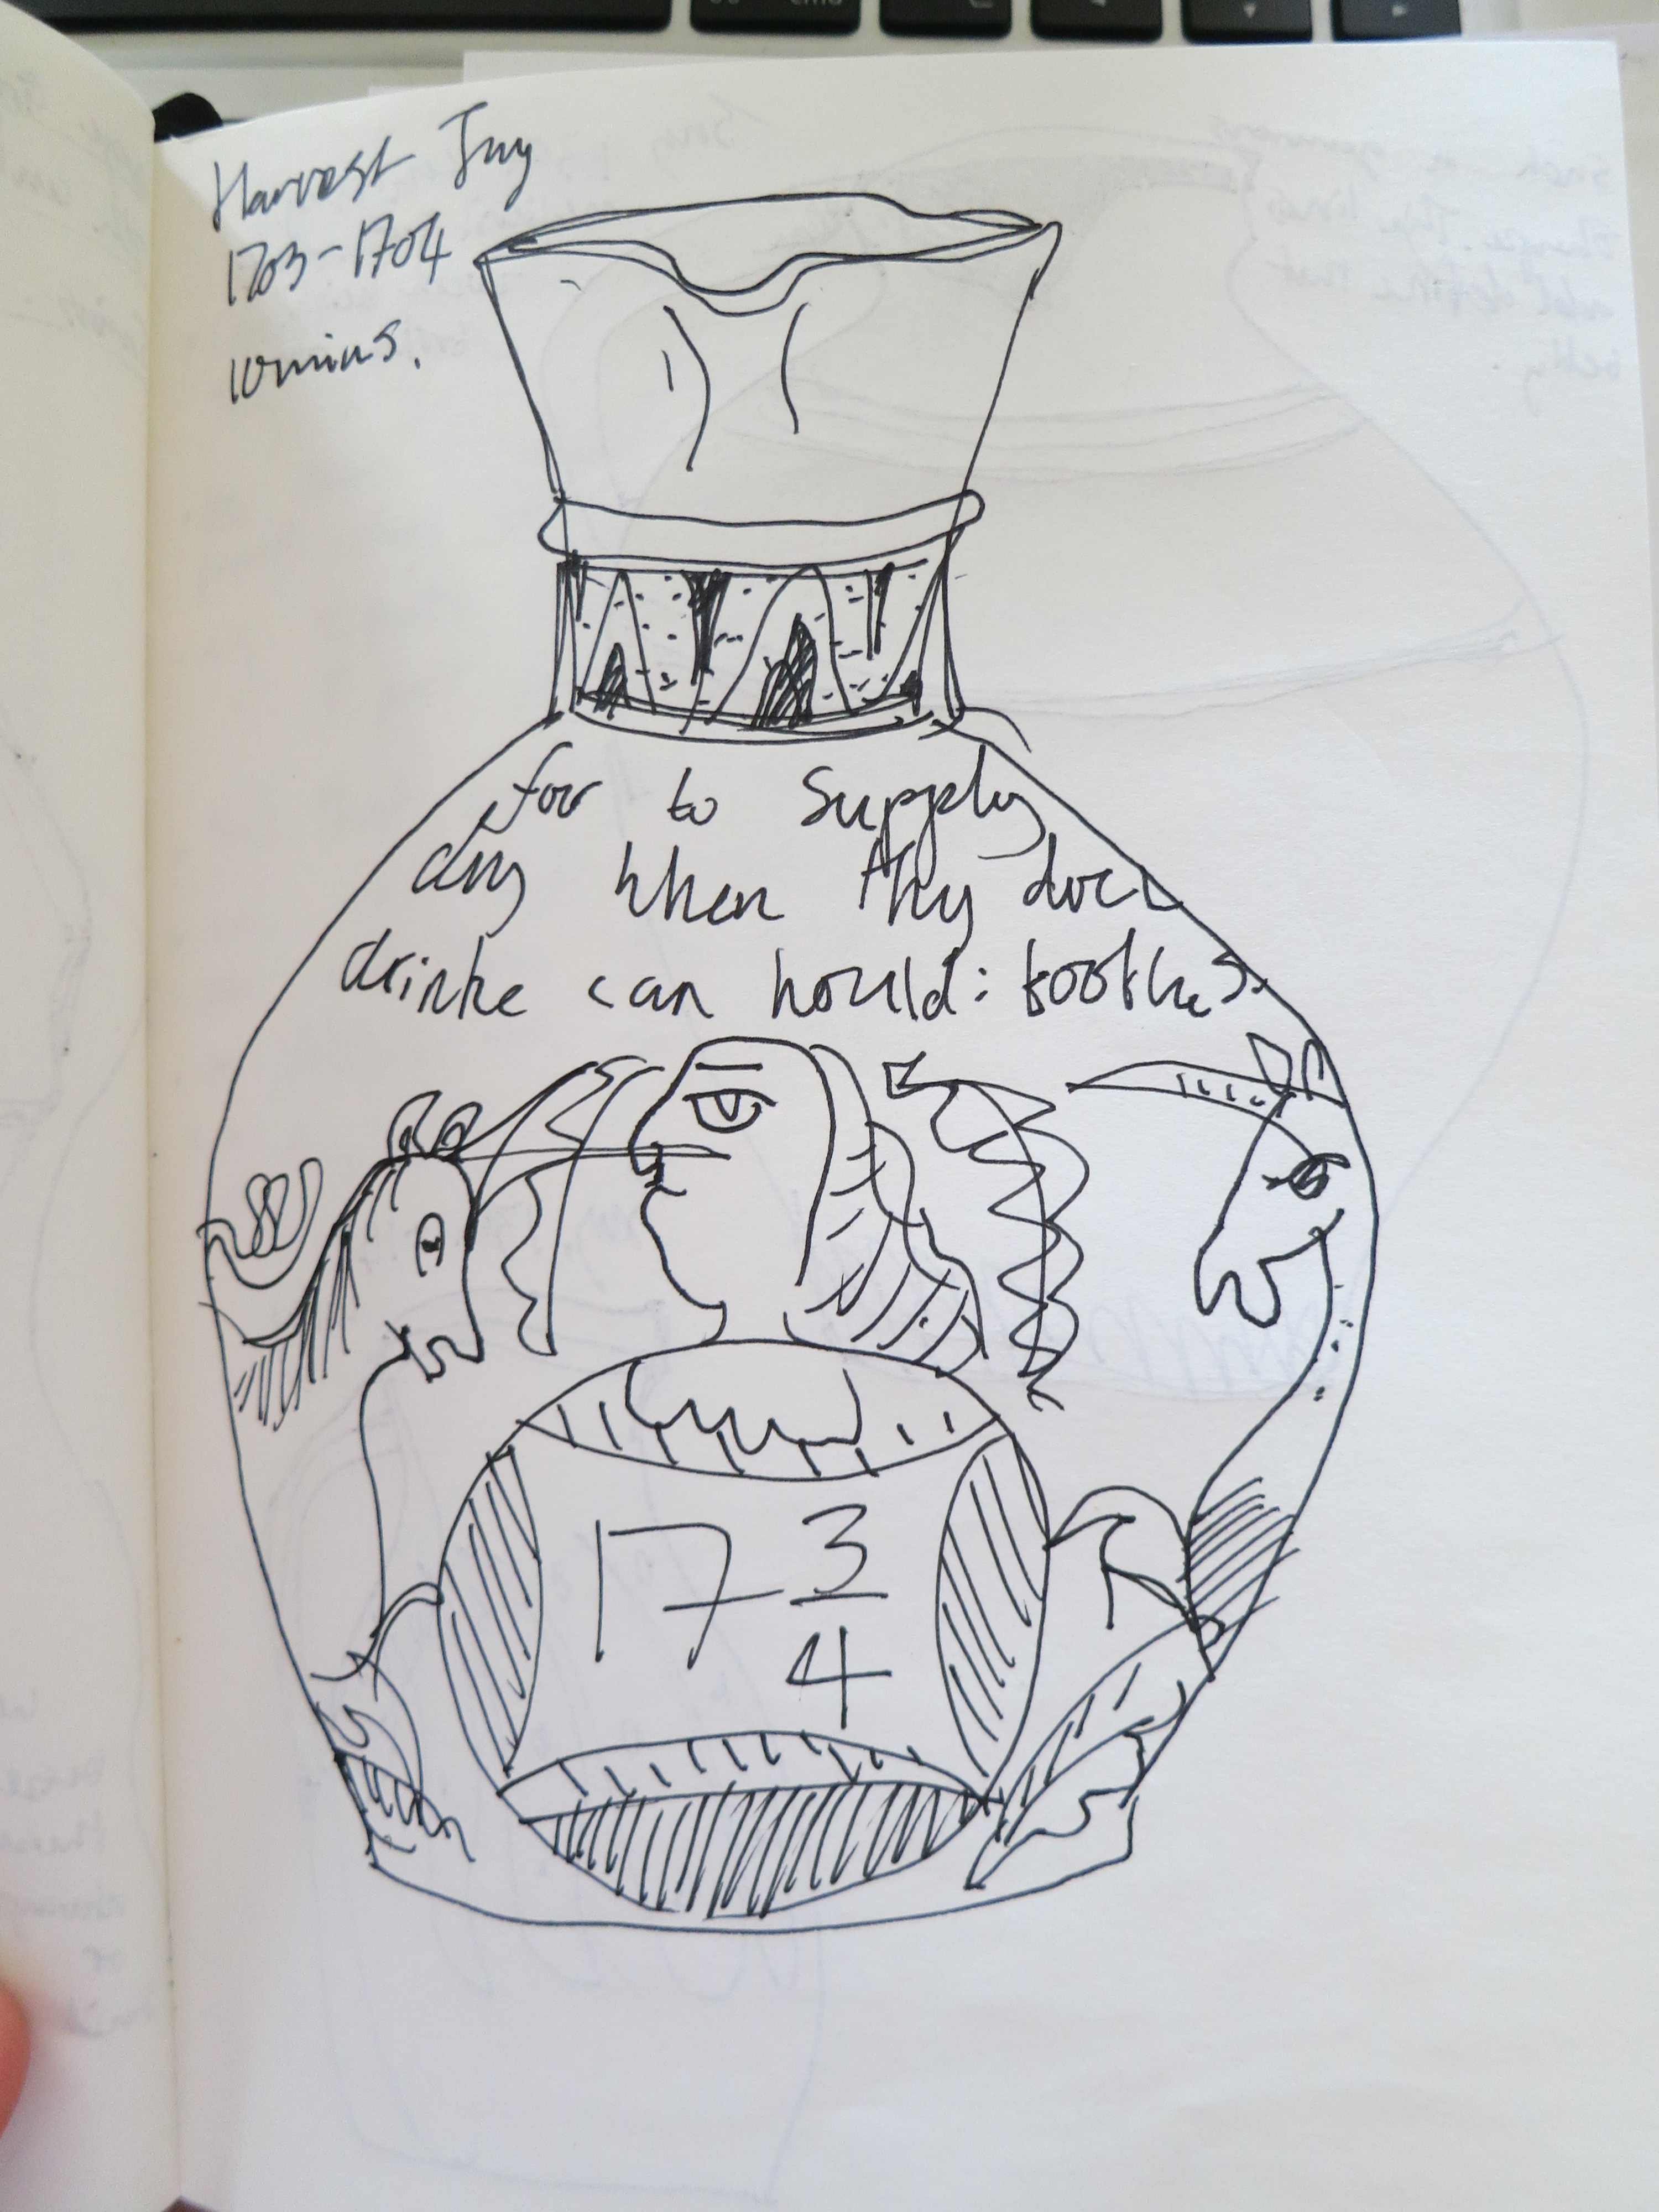 Harvest Jug
1703-1704
10 mins.
for to Supply
dry when thy doe
drinke can hould: tooth
17 3/4